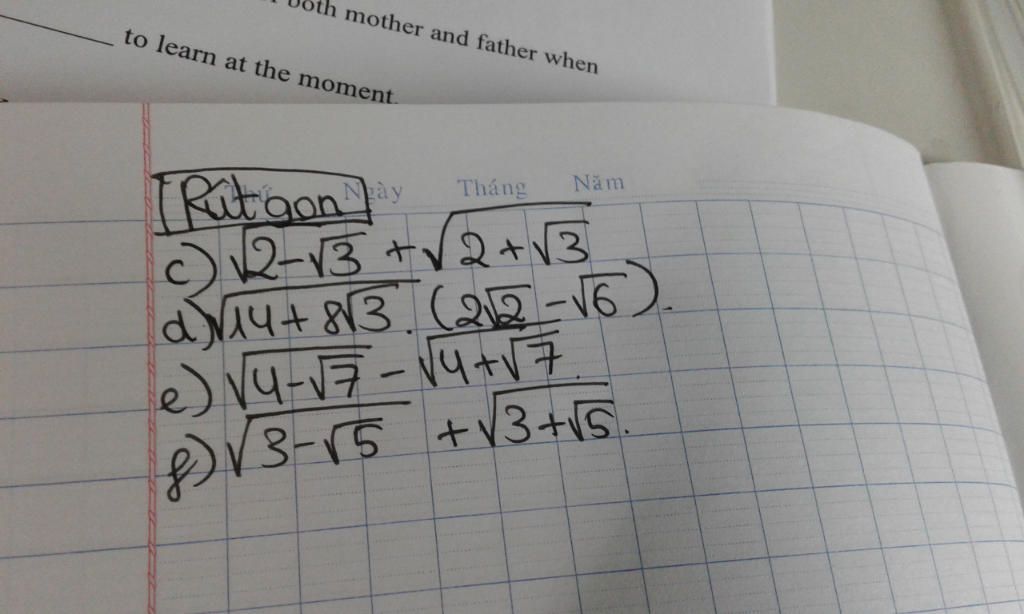 both mother and father when
to learn at the moment.
Thứ Ngày Tháng Năm
Rút gọn
c) √(2-√3) + √(2+√3)
d) √(14+8√3) . (2√2 - √6).
e) √(4-√7) - √(4+√7).
f) √(3-√5) + √(3+√5).